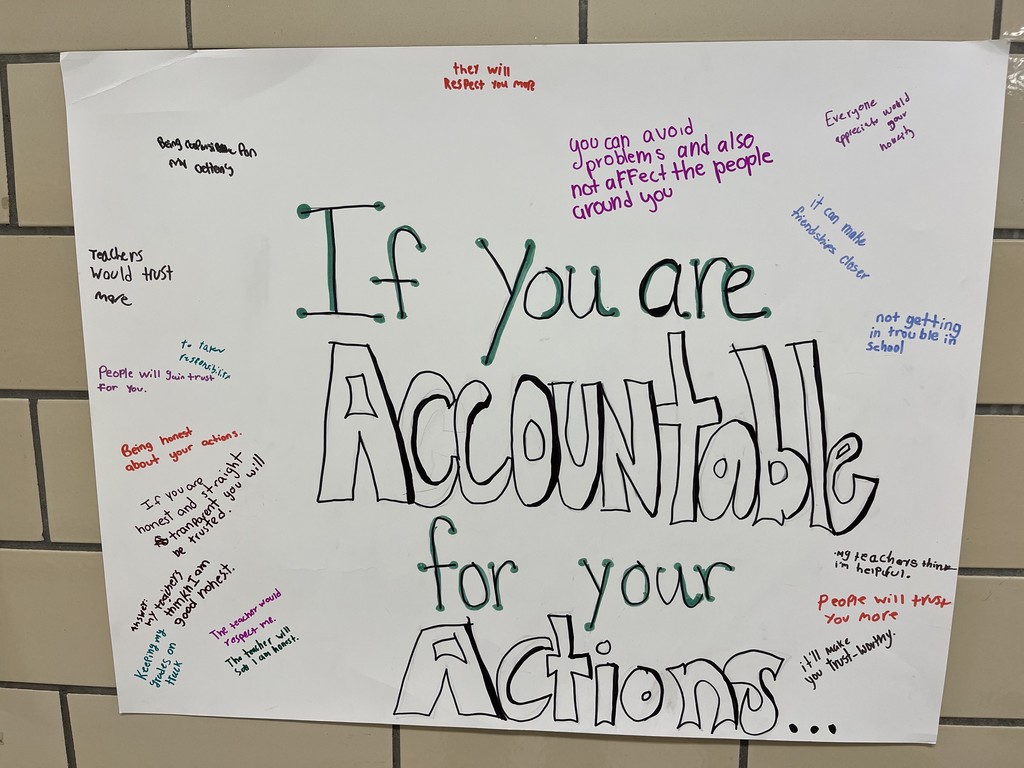 they will
Respect you more
Everyone
appreciate would
your
honesty
you can avoid
problems and also
not affect the people
around you
Being responsible for
my actions
it can make
friendships closer
If you are
Accountable
for your
Actions...
Teachers
would trust
more
not getting
in trouble in
school
to taken
responsibility
People will gain trust
for you.
Being honest
about your actions.
If you are
honest and straight
tranparent you will
be trusted.
Answer:
my teachers
thinkh I am
good honest.
Keeping my
grades on
track
The teacher would
respect me.
The teacher will
I am honest.
my teachers think
im helpful.
People will trust
you more
it'll make
you trust-worthy.